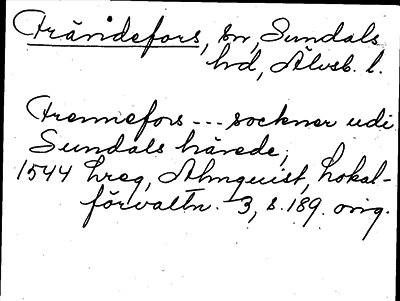 Frändefors, sn, Sundals
hd, Älvsb. l.
Fremnefors --- sockner udi
Sundals härede,
1544 hreg, Almquist, Lokal-
förvaltn. 3, s. 189. orig.